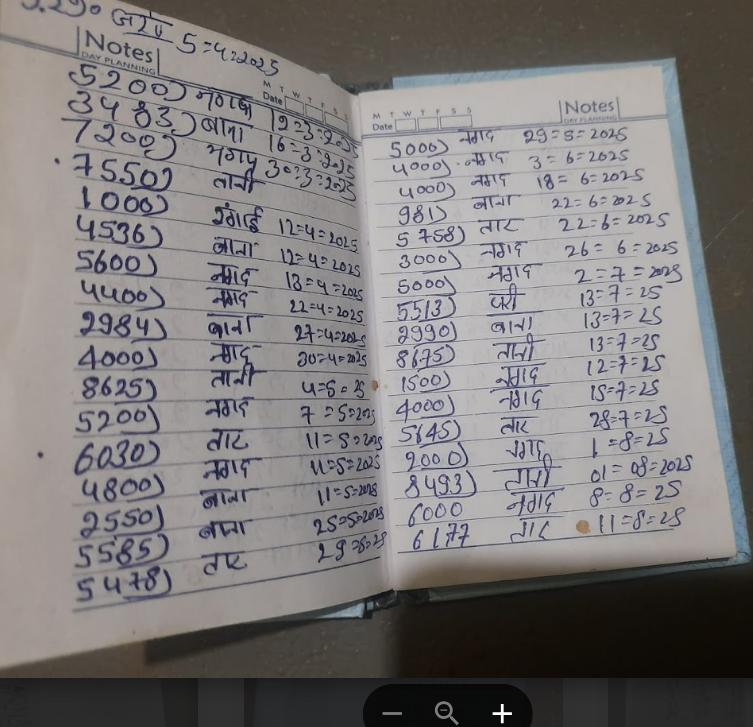 5=4=2025
Notes
DAY PLANNING
M T W T F S S
Date
5200) नगद 12=3=2025
3483) बाना 16=3=2025
7200) नगद 30=3=2025
7550) तानी
1000) रंगाई 12=4=2025
4536) बाना 12=4=2025
5600) नगद 13=4=2025
4400) नगद 22=4=2025
2984) बाना 27=4=2025
4000) नगद 30=4=2025
8625) तानी 4=5=25
5200) नगद 7=5=2025
6030) तार 11=5=2025
4800) नगद 11=5=2025
2550) बाना 11=5=2025
5585) बाना 25=5=2025
5478) तार 29=5=25
M T W T F S S
Date
Notes
DAY PLANNING
5000) नगद 29=5=2025
4000) नगद 3=6=2025
4000) नगद 18=6=2025
981) बाना 22=6=2025
5758) तार 22=6=2025
3000) नगद 26=6=2025
5000) नगद 2=7=2025
5513) 13=7=25
2990) बाना 13=7=25
8675) तानी 13=7=25
1500) नगद 12=7=25
4000) नगद 15=7=25
5645) तार 28=7=25
2000) नगद 1=8=25
8493) तानी 01=08=2025
6000 नगद 8=8=25
6177 तार 11=8=25